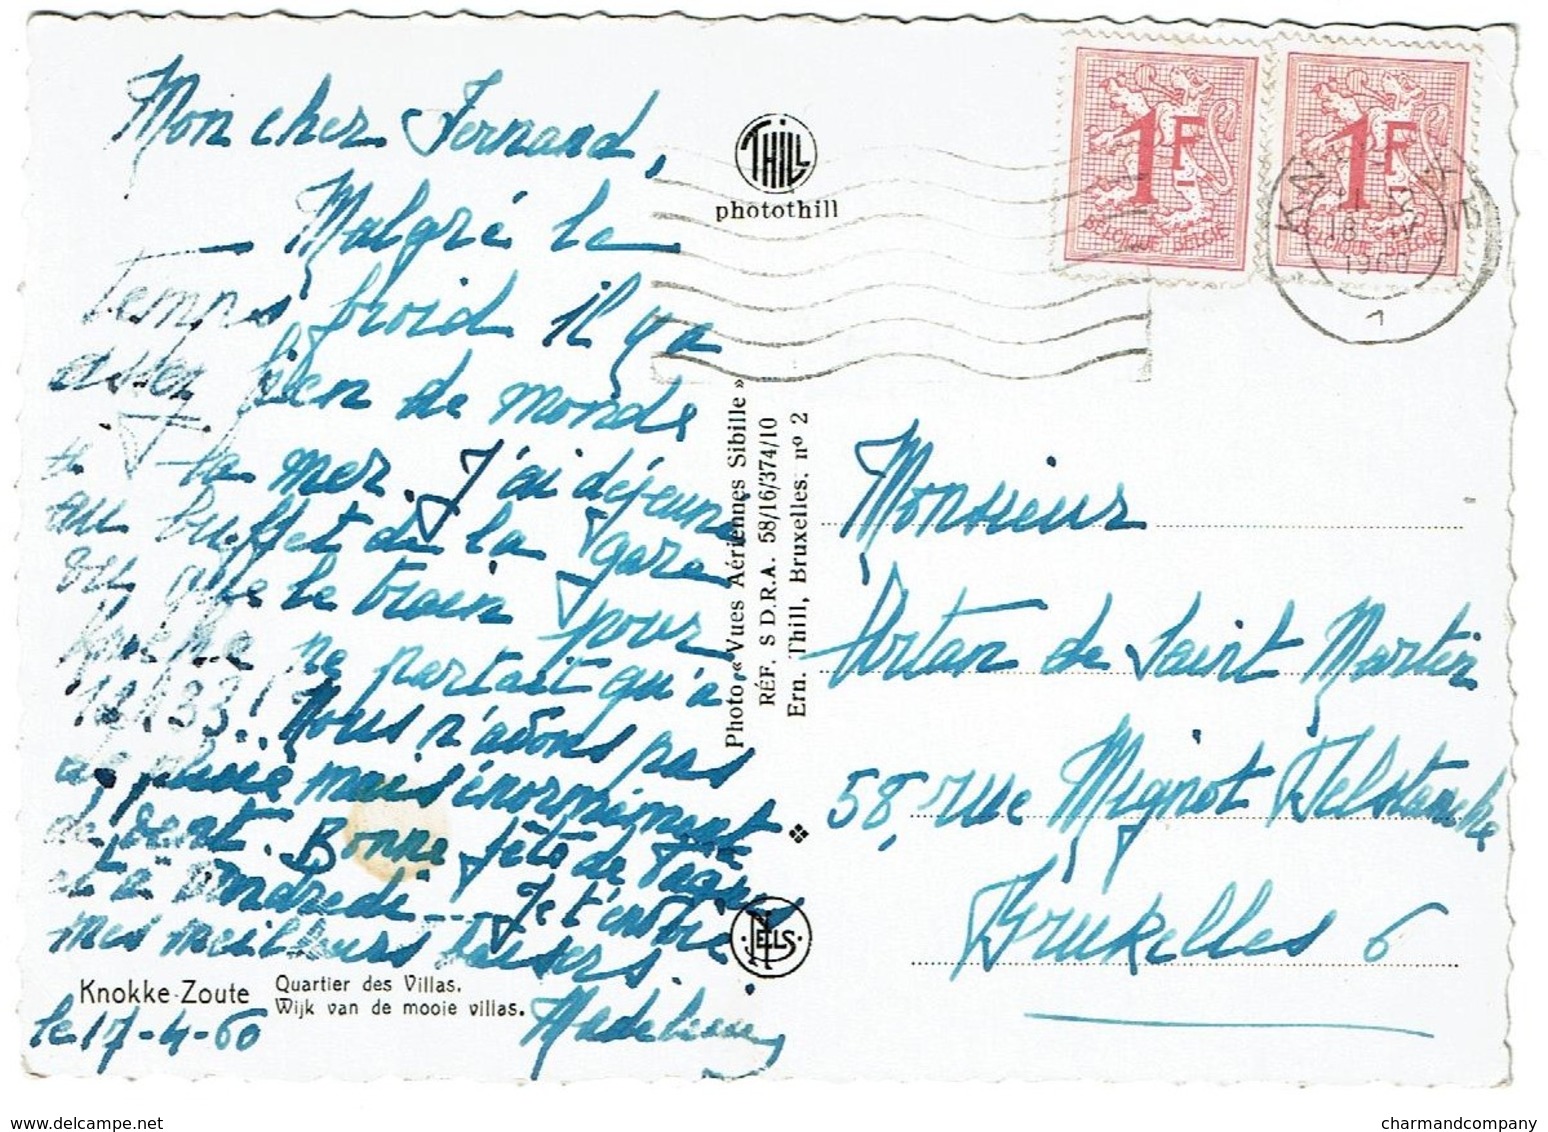 Mon cher Fernand,
Malgré le
temps froid il y a
assez bien de monde
à la mer. J'ai déjeuné
au buffet de la gare
vu que le train pour
Knokke ne partait qu'à
12h33! Nous n'avons pas
de pluie mais énormément
de vent. Bonne fête de Pâques
et à Vendredi... Je t'envoie
mes meilleurs baisers.
Knokke-Zoute Quartier des Villas.
Wijk van de mooie villas.
le 17-4-60
THILL
photothill
Photo « Vues Aériennes Sibille »
RÉF. S D.R.A. 58/16/374/10
Ern. Thill, Bruxelles, nº 2
NELS
1F
BELGIQUE-BELGIE
1F
BELGIQUE-BELGIE
18 IV
1960
1
Monsieur
Artan de Saint Martin
58, rue Mignot Delstanche
Bruxelles 6
www.delcampe.net
charmandcompany